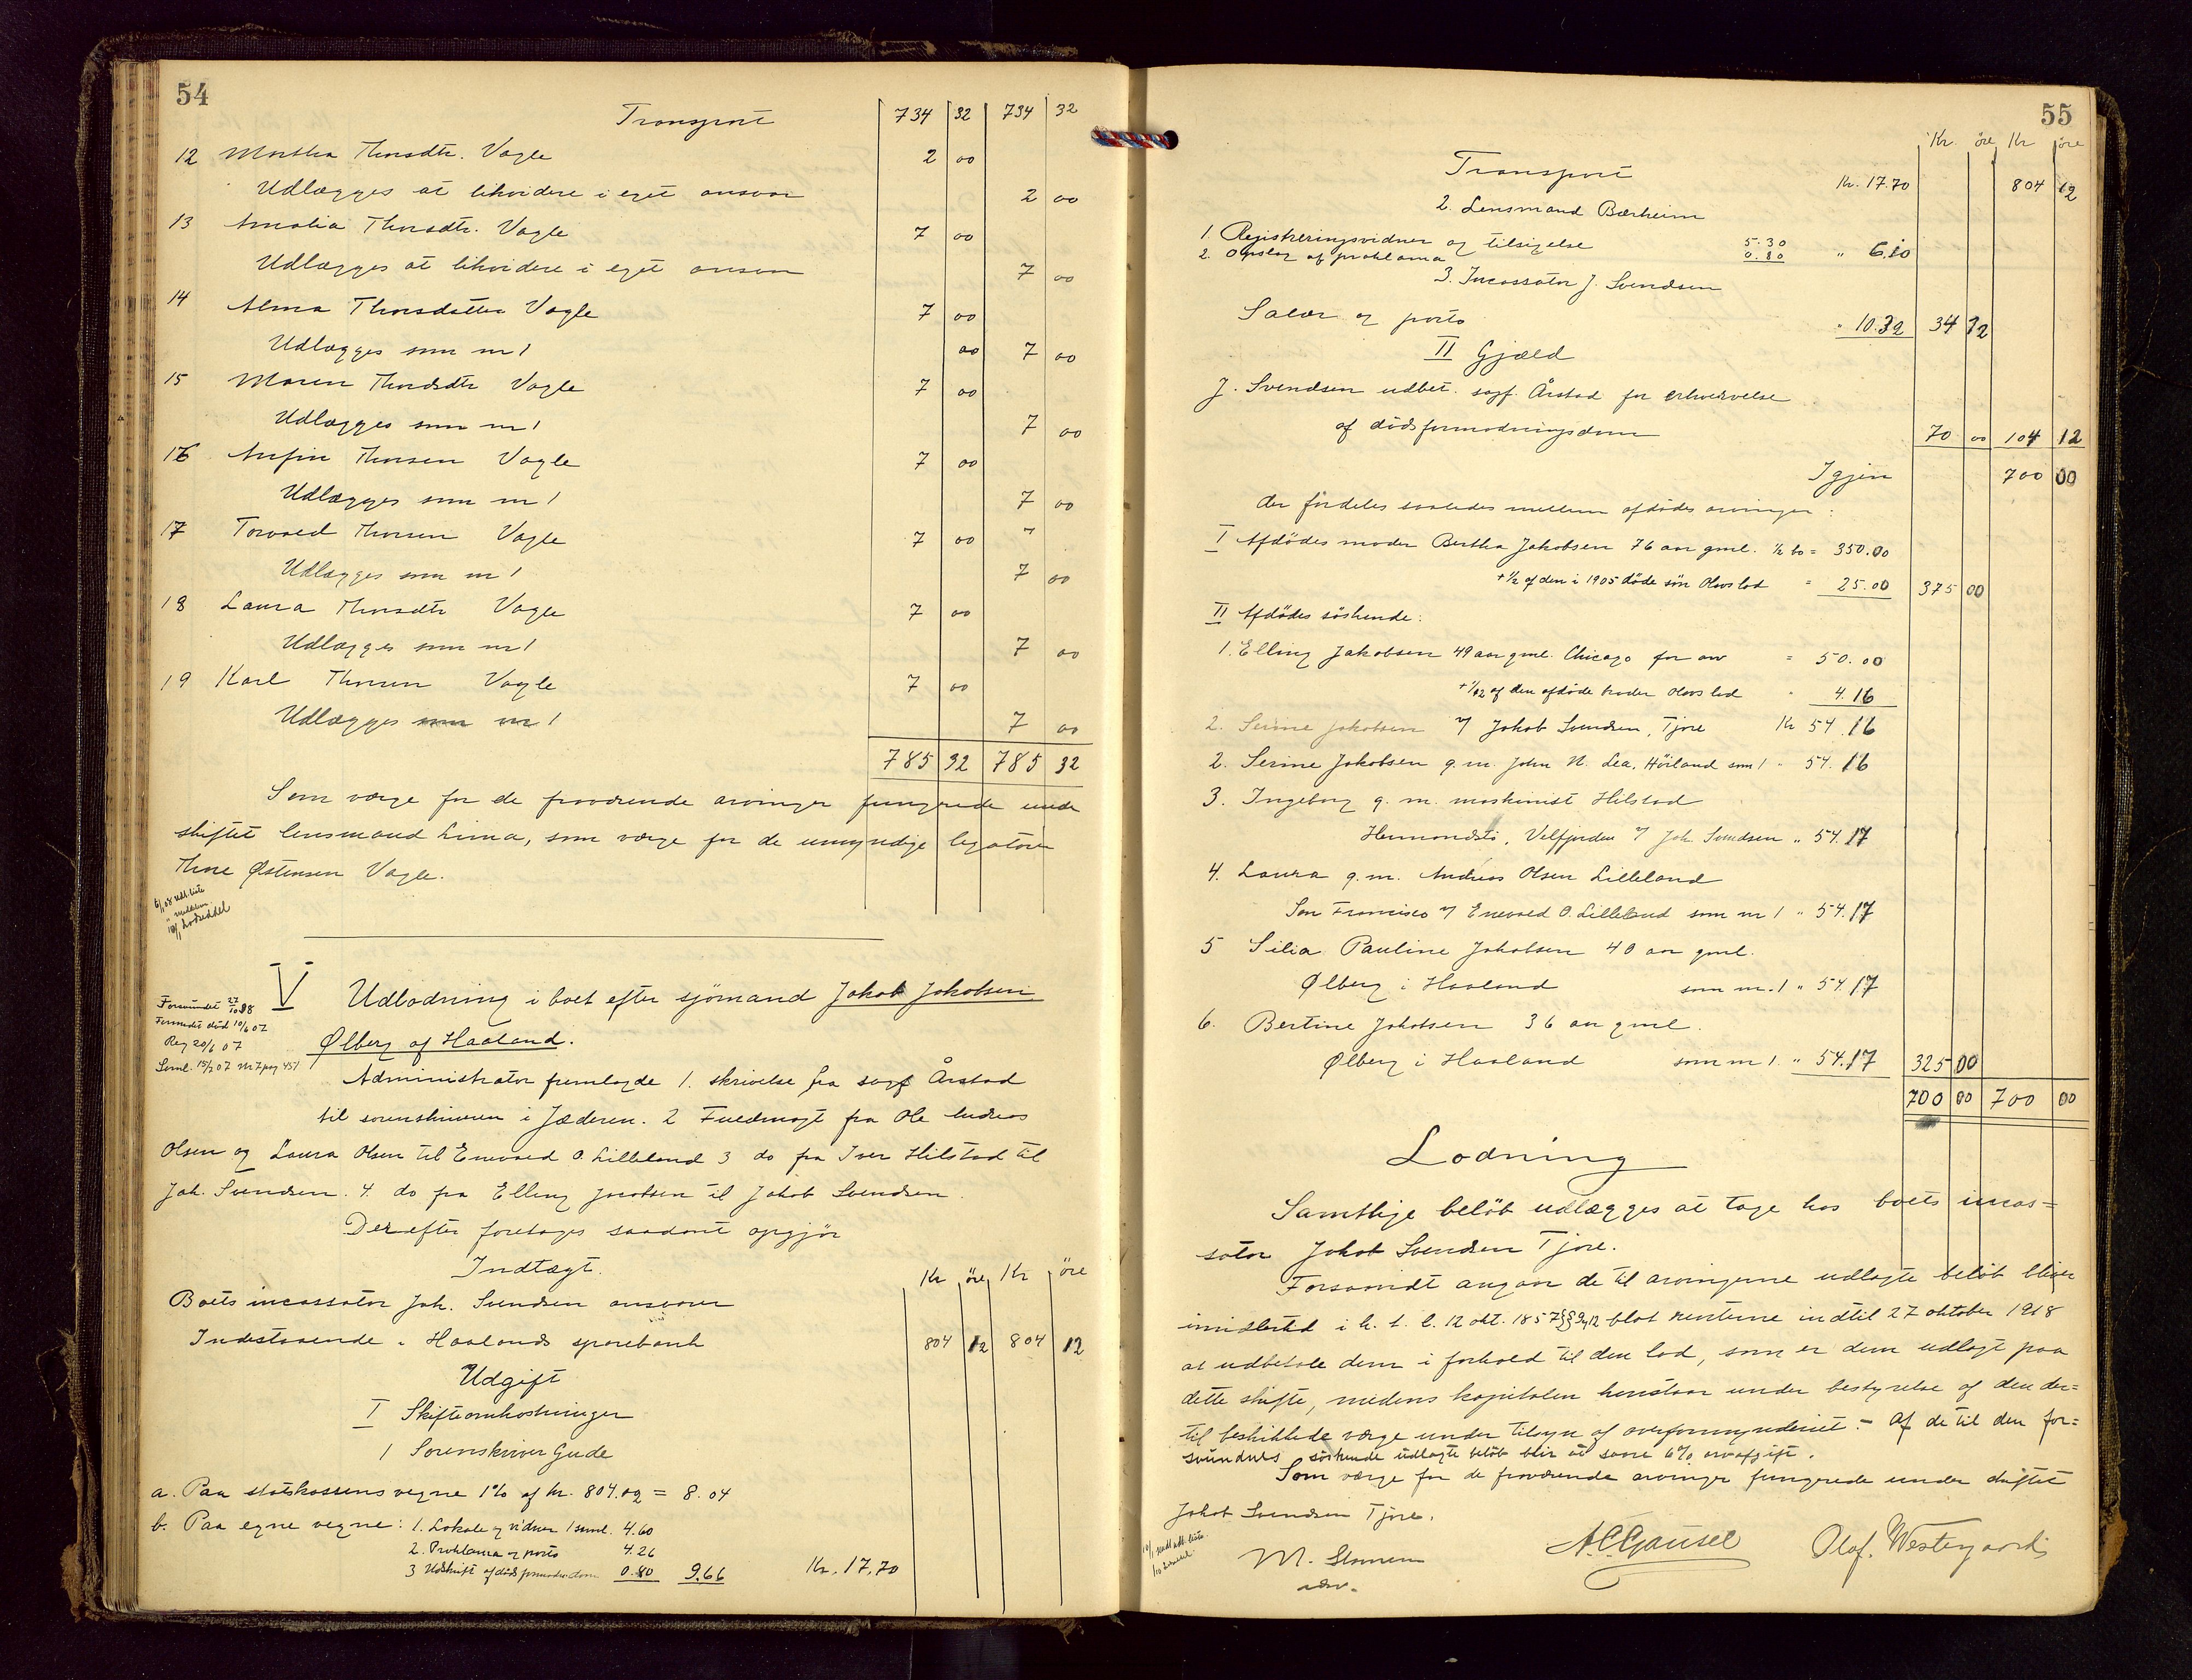 54
Transport 734 32 734 32
12 Martha Thorsdtr. Vagle 2 00
Udlægges at likvidere i eget ansvar 2 00
13 Amalia Thorsdtr. Vagle 7 00
Udlægges at likvidere i eget ansvar 7 00
14 Alma Thorsdatter Vagle 7 00
Udlægges som nr 1 00 7 00
15 Maren Thorsdtr Vagle 7 00
Udlægges som nr 1 7 00
16 Arfin Thorsen Vagle 7 00
Udlægges som nr 1 7 00
17 Torvald Thorsen Vagle 7 00
Udlægges som nr 1 7 00
18 Laura Thorsdtr Vagle 7 00
Udlægges som nr 1 7 00
19 Karl Thorsen Vagle 7 00
Udlægges som nr 1 7 00
785 32 785 32
Som værge for de fraværende arvinger fungerede under
skiftet lensmand Lima, som værge for de umyndige legatarer
Thore Østensen Vagle.
V Udlodning i boet efter sjömand Jakob Jakobsen
Ølberg af Haaland.
Forsvundet 27/10 98
Formodet död 10/6 07
Reg 20/6 07
Saml. 15/7 07 nr 7 pag 451
Administrator fremlagde 1. skrivelse fra sagf Årstad
til sorenskriveren i Jæderen. 2 Fuldmagt fra Ole Andreas
Olsen og Laura Olsen til Enevald O. Lilleland 3 do fra Iver Hilstad til
Jak. Svendsen. 4. do fra Elling Jacobsen til Jakob Svendsen.
Derefter foretages saadant opgjör
Indtægt. Kr öre Kr öre
Boets incassator Jak. Svendsen ansvarer
Indestaaende i Haalands sparebank 804 12 804 12
Udgift
I Skifteomkostninger
1 Sorenskriver Gude
a. Paa statskassens vegne 1% af kr. 804.02 = 8.04
b. Paa egne vegne: 1. Lokale og vidner 1 saml. 4.60
2. Proklama og porto 4.26
3 Udskrift af dödsformodn.dom 0.80 9.66 Kr. 17.70
55
Kr. öre Kr öre
Transport Kr. 17.70 804 12
2. Lensmand Bærheim
1. Registreringsvidner og tilsigelse 5.30
2. Opslag af proklama 0.80 " 6.10
3. Incassator J. Svendsen
Salær og porto " 10.32 34 12
II Gjæld
J. Svendsen udbet. sagf. Årstad for erhvervelse
af dödsformodningsdom 70 00 104 12
Igjen 700 00
der fordeles saaledes mellem afdödes arvinger:
I Afdödes moder Bertha Jakobsen 76 aar gml. 1/2 bo = 350.00
+ 1/2 af den i 1905 döde sön Olavs lod = 25.00 375 00
II Afdödes söskende:
1. Elling Jakobsen 49 aar gml. Chicago for arv = 50.00
+ 1/12 af den afdöde broder Olavs lod " 4.16
2. Serine Jakobsen v/ Jakob Svendsen, Tjore Kr 54.16
2. Serine Jakobsen g. m. John N. Lea, Hörland som 1 " 54.16
3. Ingeborg g. m. maskinist Hilstad
Velfjorden v/ Jak. Svendsen " 54.17
4. Laura g. m. Andreas Olsen Lilleland
San Francisco v/ Enevald O. Lilleland som nr 1 " 54.17
5 Silia Pauline Jakobsen 40 aar gml.
Ølberg i Haaland som nr. 1 " 54.17
6. Bertine Jakobsen 36 aar gml.
Ølberg i Haaland som nr 1. " 54.17 325 00
700 00 700 00
Lodning
Samtlige belöb udlægges at tage hos boets incas=
sator Jakob Svendsen Tjore.
Forsaavidt angaar de til arvingerne udlagte belöb bliver
imidlertid i h. t. l. 12 okt. 1857 §§ 9, 12 blot renterne indtil 27 oktober 1918
at udbetale dem i forhold til den lod, som er dem udlagt paa
dette skifte, medens kapitalen henstaar under bestyrelse af den der=
til beskikkede værge under tilsyn af overformynderiet. – Af de til den for=
svundnes söskende udlagte belöb blir at svare 6% arvafgift.
Som værge for de fraværende arvinger fungerede under skiftet
Jakob Svendsen Tjore.
A.C. Gausel Olaf. Westergaard